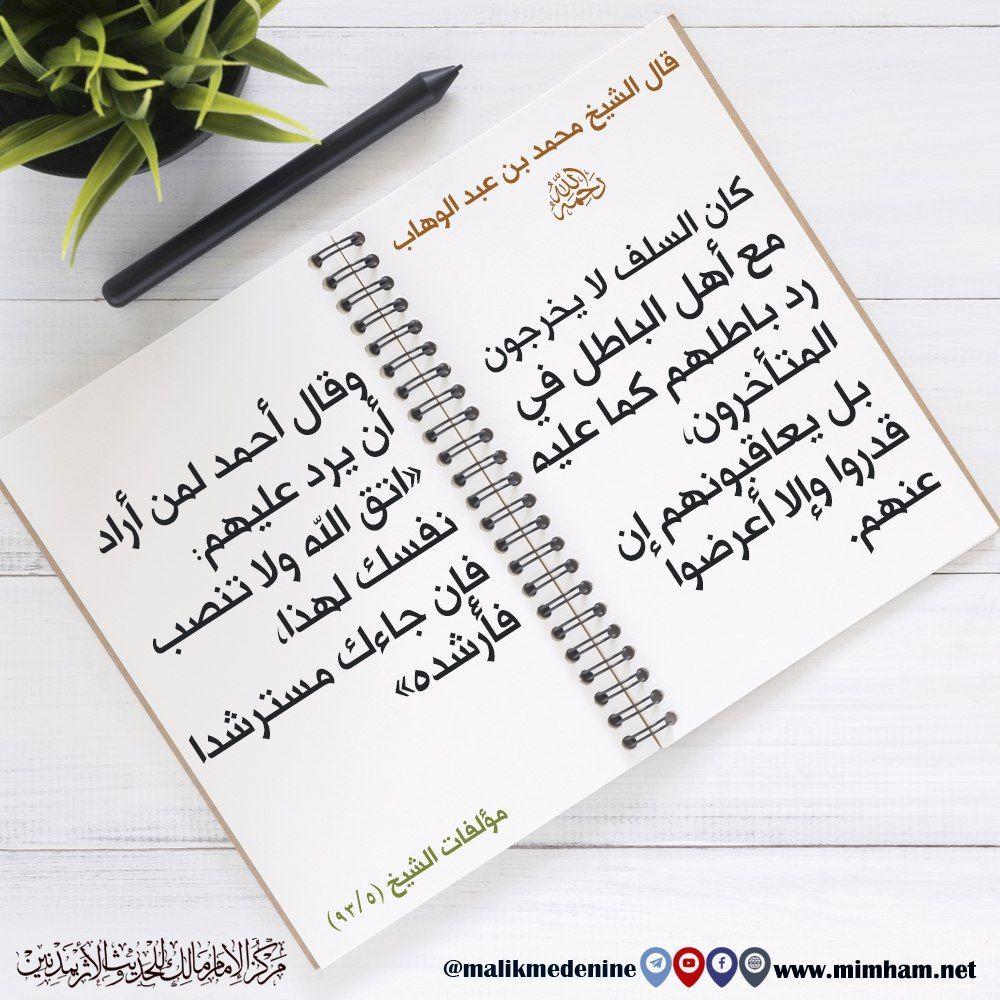 قال الشيخ محمد بن عبد الوهاب
رحمه الله
كان السلف لا يخرجون
مع أهل الباطل في
رد باطلهم كما عليه
المتأخرون،
بل يعاقبونهم إن
قدروا وإلا أعرضوا
عنهم.
وقال أحمد لمن أراد
أن يرد عليهم:
«اتق الله ولا تنصب
نفسك لهذا،
فإن جاءك مسترشدا
فأرشده»
مؤلفات الشيخ (٩٣/٥)
مركز الإمام مالك للحديث والأثر بمدنين
@malikmedenine www.mimham.net